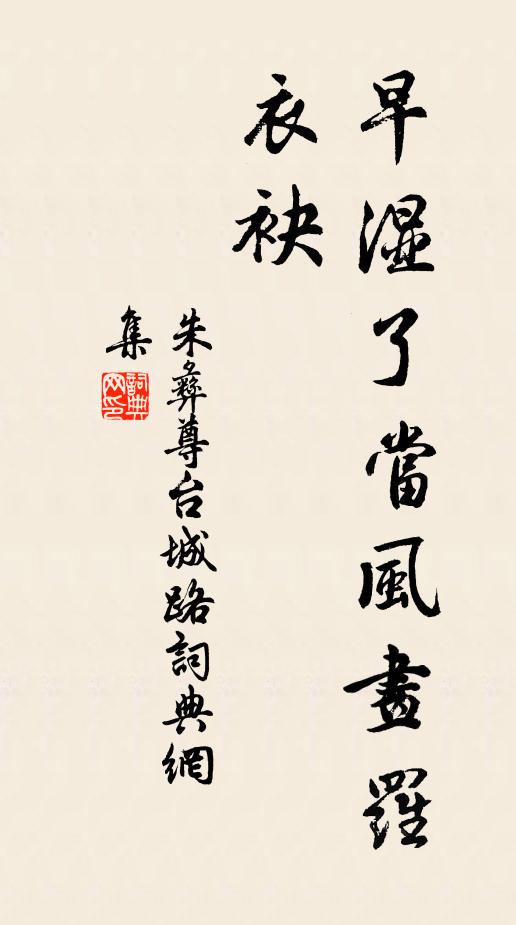 早湿了當風畫羅
衣袂
朱彝尊台城路詞典網
集
詞典
网印